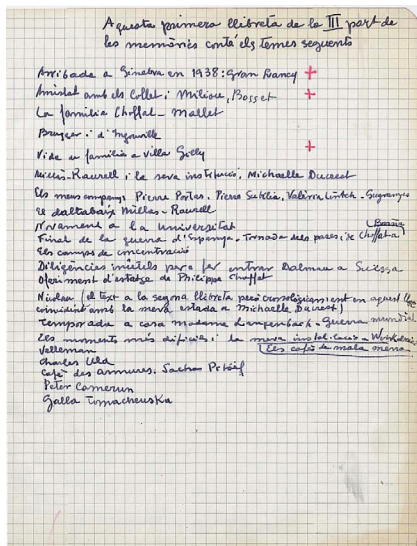 Aquesta primera llibreta de la III part de
les memòries conté els temes seguents
Arribada a Ginebra en 1938: Gran Bancy +
Amistat amb els Collet i Milioud, Bosset +
La familia Choffat - Mallet
Brugger i d'Ingouville
Vida en familia a Villa Gilly +
Milàs-Raurell i la seva institució, Michaelle Ducrest
Els meus companys Pierre Portas, Pierre Valèria
El daltabaix Millàs-Raurell
Novament a la Universitat
Final de la guerra d'Espanya. Tornada dels pares (i de Choffat a
Els camps de concentració
Diligències inútils per a fer entrar Dalmau a Suïssa
Oferiment d'estatge de Philippe Choffat
Nicolau (el text a la segona llibreta però cronològicament en aquest lloc
coincidint amb la meva estada a Michaelle Ducrest)
Temporada a casa madame Langenbach - Guerra mundial
Els moments més difícils i la meva instal·lació a
Els cafès de mala mena
Velleman
Charles Uld
Cafè des armures. Sachas Pitoëf
Peter Camerun
Galla Tomacheuska